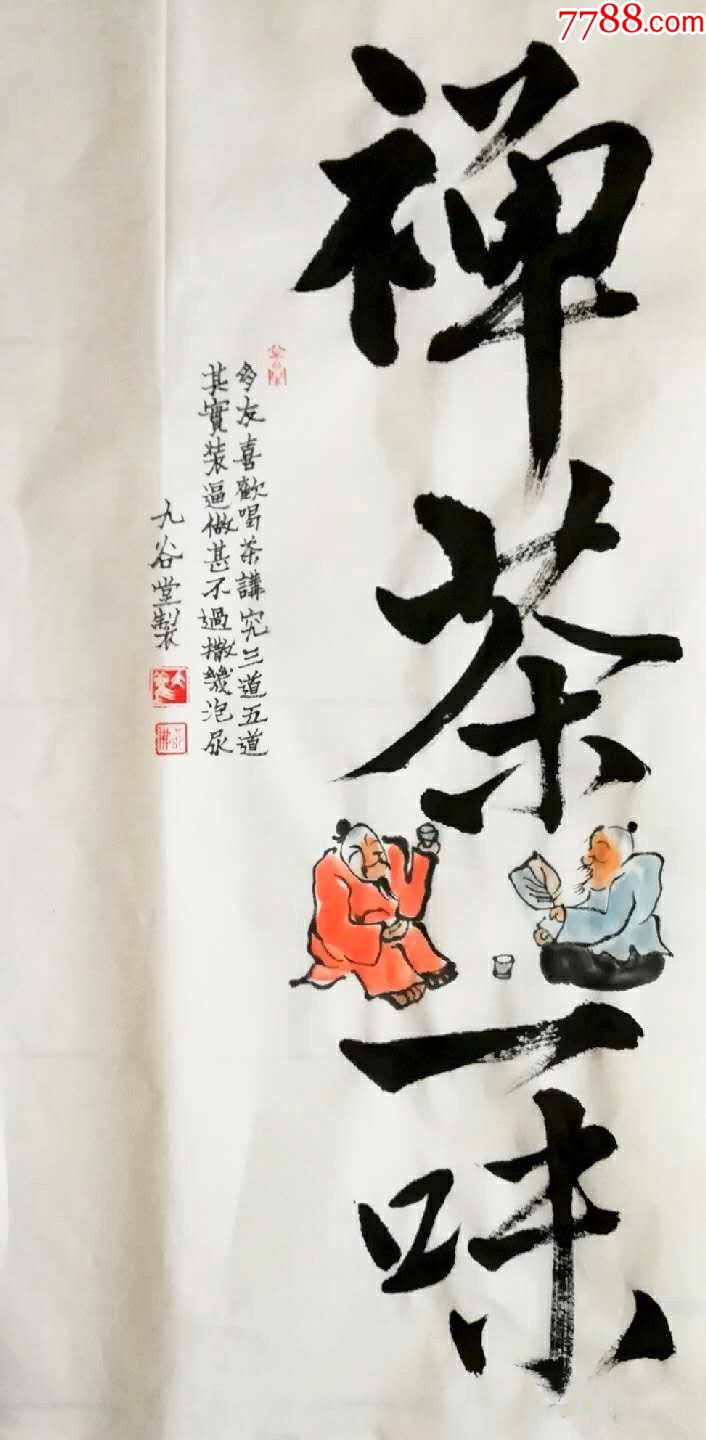 7788.com
禅茶一味
多友喜歡喝茶講究三道五道
其實裝逼做甚不過撒幾泡尿
九谷堂製